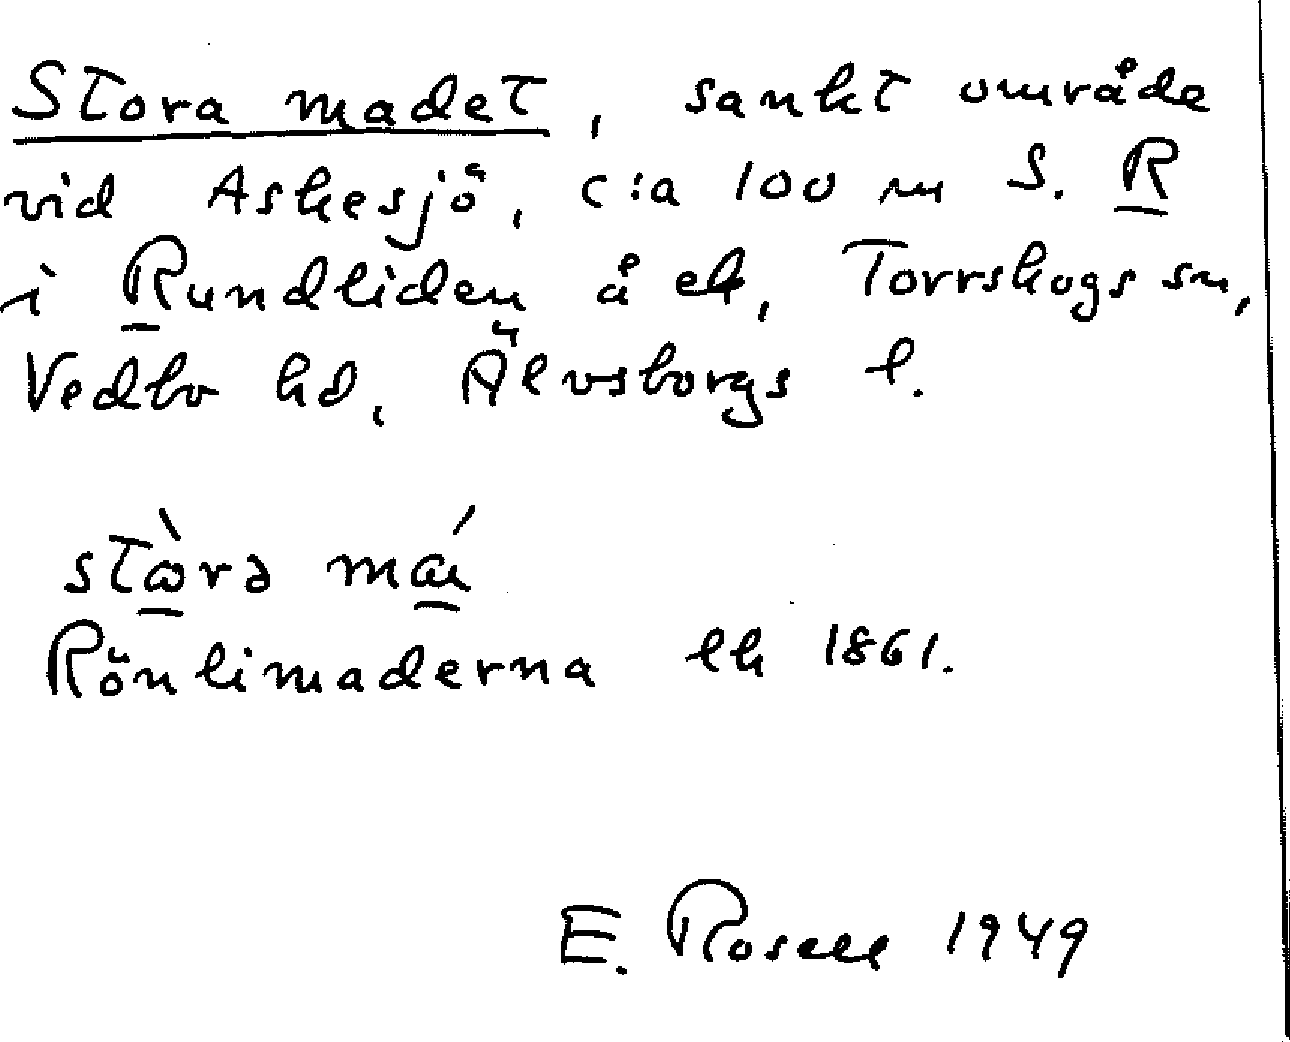 Stora madet, sankt område
vid Askesjö, c:a 100 m S. R
i Rundliden å ek, Torrskogs sn,
Vedbo hd, Älvsborgs l.
stò̱rə má̱u
Rönlimaderna lk 1861.
E. Rosell 1949